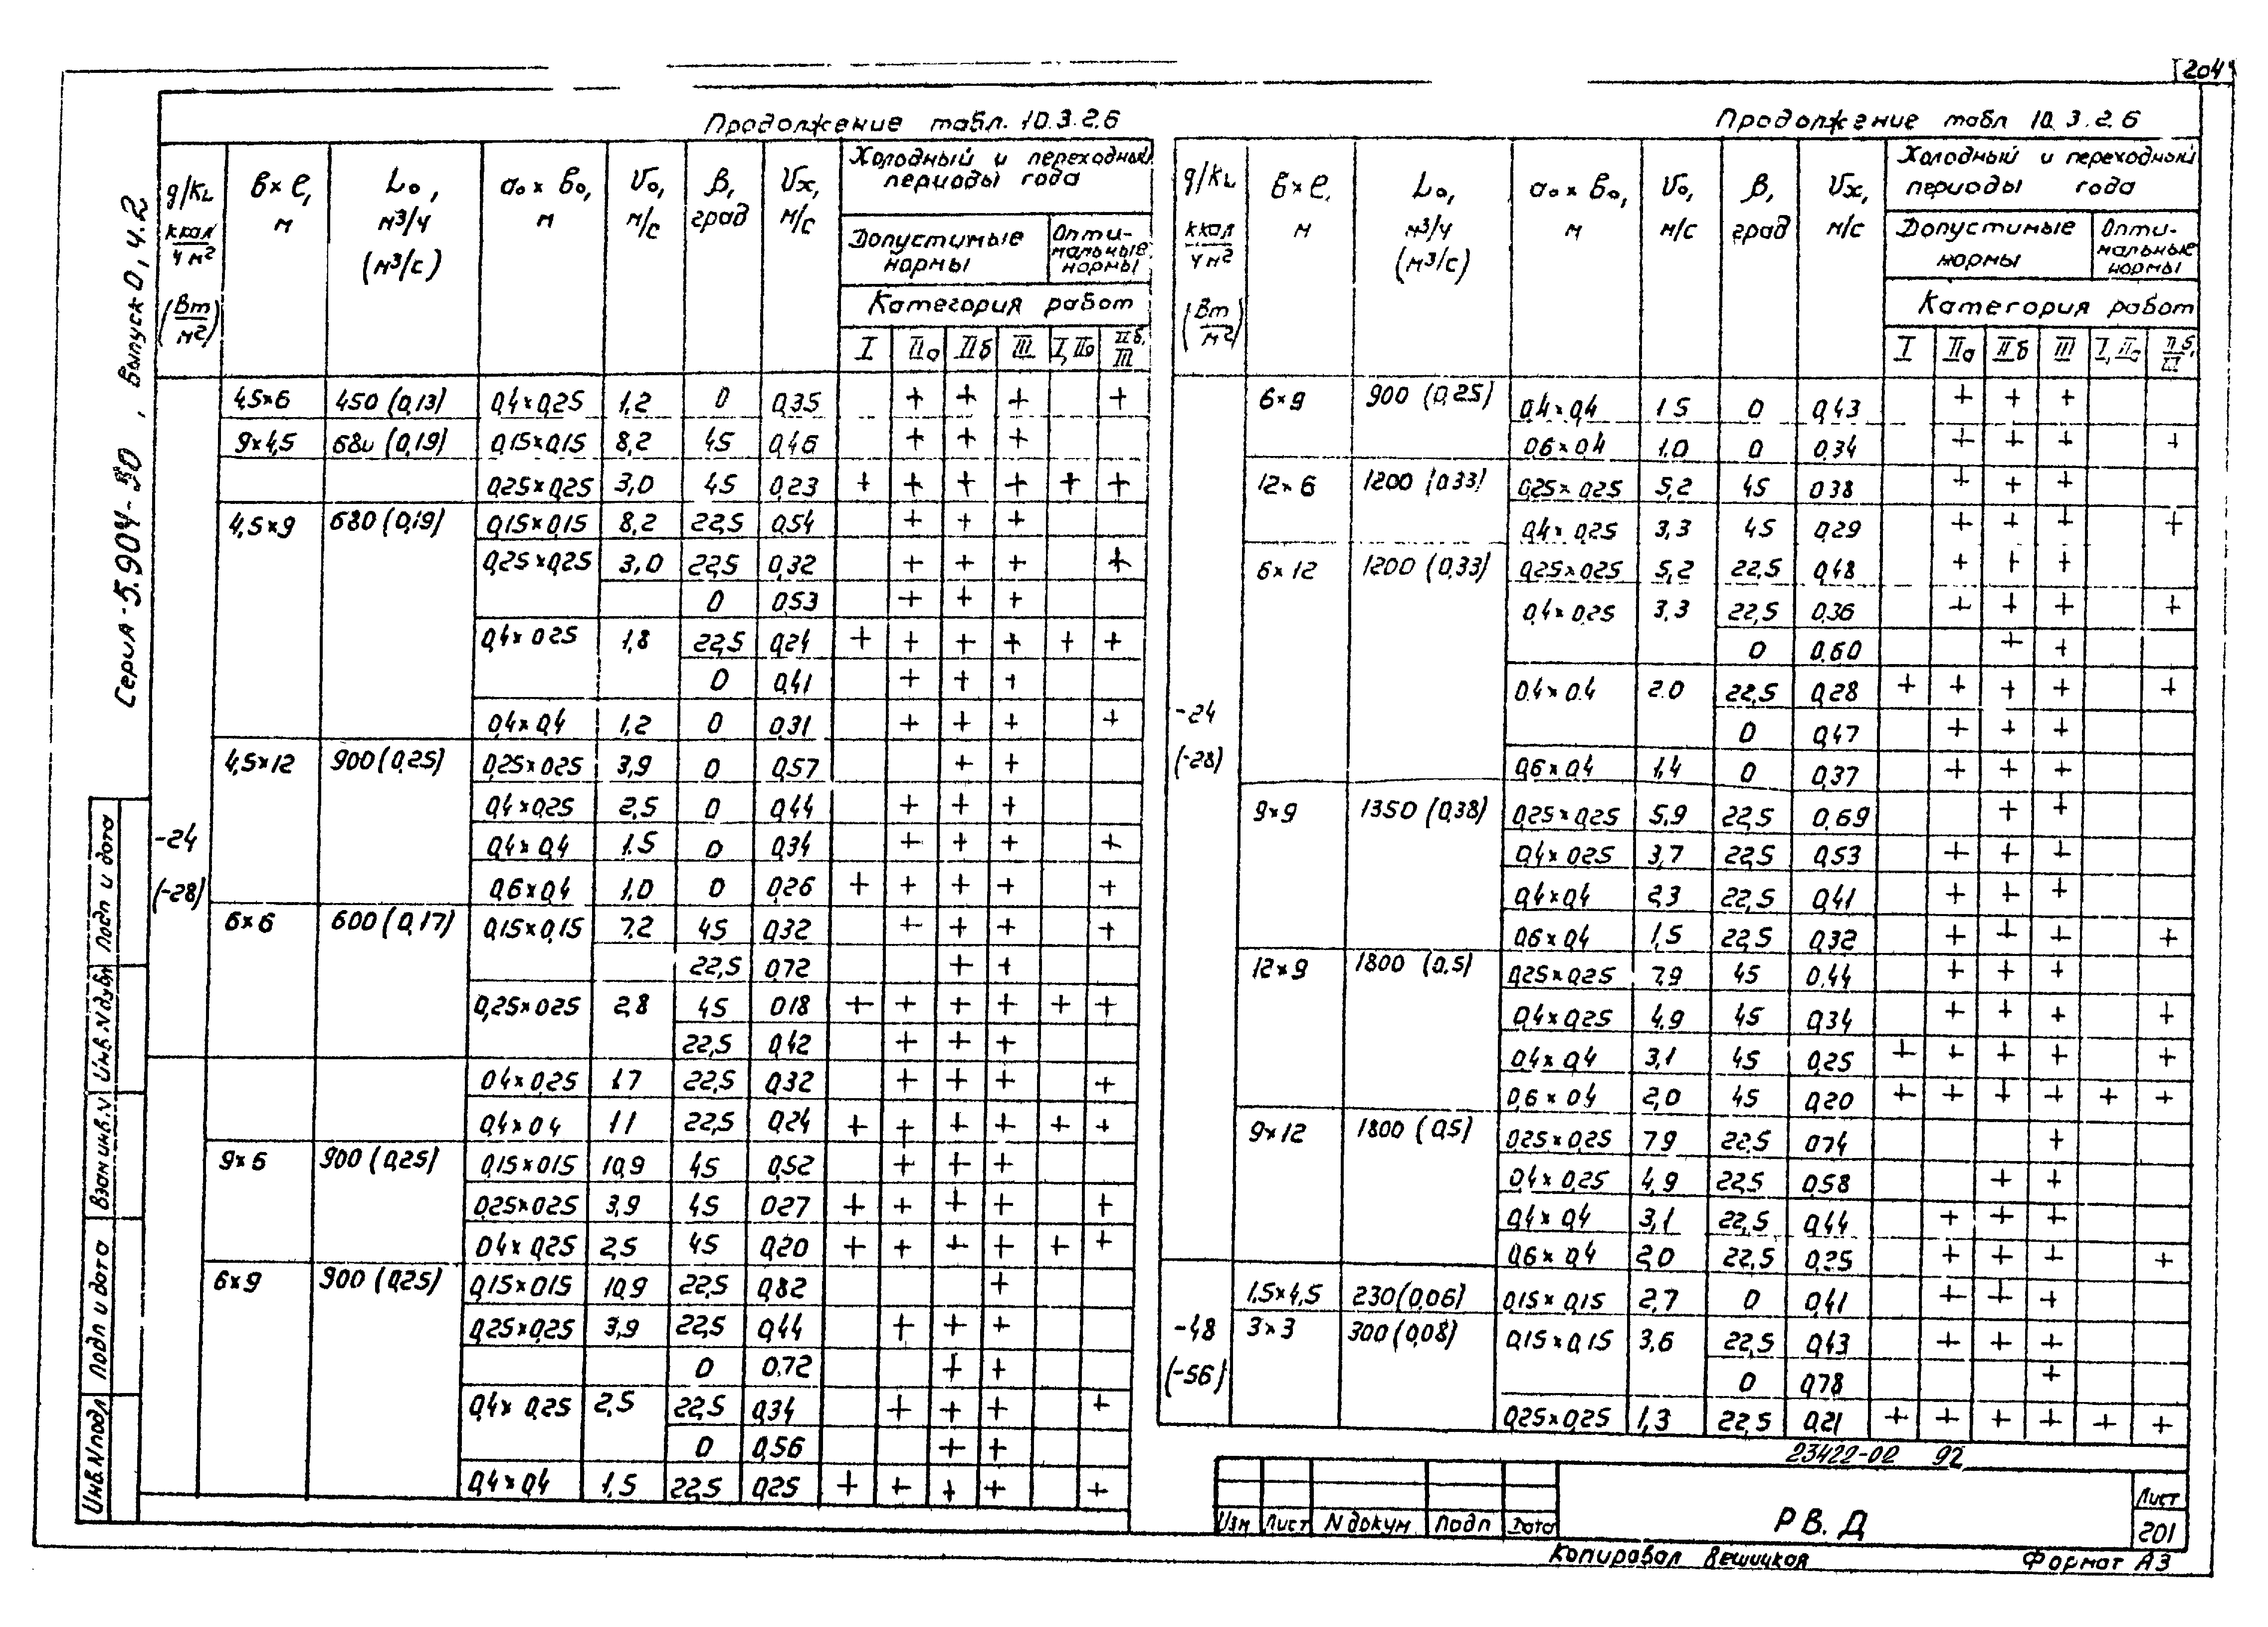 204
Серия-5.904-50, Выпуск 0, ч.2
Продолжение табл. 10.3.2.6
g/kL ккал/чм² (Вт/м²) | в×ℓ, м | L₀, м³/ч (м³/с) | a₀×в₀, м | V₀, м/с | β, град | Vx, м/с | Холодный и переходный периоды года
Допустимые нормы | Оптимальные нормы
Категория работ
I | IIа | IIб | III | I, IIа | IIб, III
-24 (-28)
4,5×6 | 450 (0,13) | 0,4×0,25 | 1,2 | 0 | 0,35 | | + | + | + | | +
9×4,5 | 680 (0,19) | 0,15×0,15 | 8,2 | 45 | 0,46 | | + | + | + | |
0,25×0,25 | 3,0 | 45 | 0,23 | + | + | + | + | + | +
4,5×9 | 680 (0,19) | 0,15×0,15 | 8,2 | 22,5 | 0,54 | | + | + | + | |
0,25×0,25 | 3,0 | 22,5 | 0,32 | | + | + | + | | +
0 | 0,53 | | + | + | + | |
0,4×0,25 | 1,8 | 22,5 | 0,24 | + | + | + | + | + | +
0 | 0,41 | | + | + | + | |
0,4×0,4 | 1,2 | 0 | 0,31 | | + | + | + | | +
4,5×12 | 900 (0,25) | 0,25×0,25 | 3,9 | 0 | 0,57 | | | + | + | |
0,4×0,25 | 2,5 | 0 | 0,44 | | + | + | + | |
0,4×0,4 | 1.5 | 0 | 0,34 | | + | + | + | | +
0,6×0,4 | 1,0 | 0 | 0,26 | + | + | + | + | | +
6×6 | 600 (0,17) | 0,15×0,15 | 7,2 | 45 | 0,32 | | + | + | + | | +
22,5 | 0,72 | | | + | + | |
0,25×0,25 | 2,8 | 45 | 0,18 | + | + | + | + | + | +
22,5 | 0,42 | | + | + | + | |
0,4×0,25 | 1,7 | 22,5 | 0,32 | | + | + | + | | +
0,4×0,4 | 1,1 | 22,5 | 0,24 | + | + | + | + | + | +
9×6 | 900 (0,25) | 0,15×0,15 | 10,9 | 45 | 0,52 | | + | + | + | |
0,25×0,25 | 3,9 | 45 | 0,27 | + | + | + | + | | +
0,4×0,25 | 2,5 | 45 | 0,20 | + | + | + | + | + | +
6×9 | 900 (0,25) | 0,15×0,15 | 10,9 | 22,5 | 0,82 | | | | + | |
0,25×0,25 | 3,9 | 22,5 | 0,44 | | + | + | + | |
0 | 0,72 | | | + | + | |
0,4×0,25 | 2,5 | 22,5 | 0,34 | | + | + | + | | +
0 | 0,56 | | | + | + | |
0,4×0,4 | 1,5 | 22,5 | 0,25 | + | + | + | + | | +
Продолжение табл 10.3.2.6
g/kL ккал/чм² (Вт/м²) | в×ℓ, м | L₀, м³/ч (м³/с) | a₀×в₀, м | V₀, м/с | β, град | Vx, м/с | Холодный и переходный периоды года
Допустимые нормы | Оптимальные нормы
Категория работ
I | IIа | IIб | III | I, IIа | IIб, III
-24 (-28)
6×9 | 900 (0,25) | 0,4×0,4 | 1,5 | 0 | 0,43 | | + | + | + | |
0,6×0,4 | 1,0 | 0 | 0,34 | | + | + | + | | +
12×6 | 1200 (0,33) | 0,25×0,25 | 5,2 | 45 | 0,38 | | + | + | + | |
0,4×0,25 | 3,3 | 45 | 0,29 | | + | + | + | | +
6×12 | 1200 (0,33) | 0,25×0,25 | 5,2 | 22,5 | 0,48 | | + | + | + | |
0,4×0,25 | 3,3 | 22,5 | 0,36 | | + | + | + | | +
0 | 0,60 | | | + | + | |
0,4×0,4 | 2,0 | 22,5 | 0,28 | + | + | + | + | | +
0 | 0,47 | | + | + | + | |
0,6×0,4 | 1,4 | 0 | 0,37 | | + | + | + | |
9×9 | 1350 (0,38) | 0,25×0,25 | 5,9 | 22,5 | 0,69 | | | + | + | |
0,4×0,25 | 3,7 | 22,5 | 0,53 | | + | + | + | |
0,4×0,4 | 2,3 | 22,5 | 0,41 | | + | + | + | |
0,6×0,4 | 1,5 | 22,5 | 0,32 | | + | + | + | | +
12×9 | 1800 (0,5) | 0,25×0,25 | 7,9 | 45 | 0,44 | | + | + | + | |
0,4×0,25 | 4,9 | 45 | 0,34 | | + | + | + | | +
0,4×0,4 | 3,1 | 45 | 0,25 | + | + | + | + | | +
0,6×0,4 | 2,0 | 45 | 0,20 | + | + | + | + | + | +
9×12 | 1800 (0,5) | 0,25×0,25 | 7,9 | 22,5 | 0,74 | | | | + | |
0,4×0,25 | 4,9 | 22,5 | 0,58 | | | + | + | |
0,4×0,4 | 3,1 | 22,5 | 0,44 | | + | + | + | |
0,6×0,4 | 2,0 | 22,5 | 0,25 | | + | + | + | | +
-48 (-56)
1,5×4,5 | 230 (0,06) | 0,15×0,15 | 2,7 | 0 | 0,41 | | + | + | + | |
3×3 | 300 (0,08) | 0,15×0,15 | 3,6 | 22,5 | 0,43 | | + | + | + | |
0 | 0,78 | | | | + | |
0,25×0,25 | 1,3 | 22,5 | 0,21 | + | + | + | + | + | +
23422-02 92
Изм Лист N докум Подп Дата
РВ.Д
Лист
201
Копировал Вешицков
Формат А3
Инв.N подл
Подп и дата
Взам инв.N
Инв.N дубл
Подп и дата